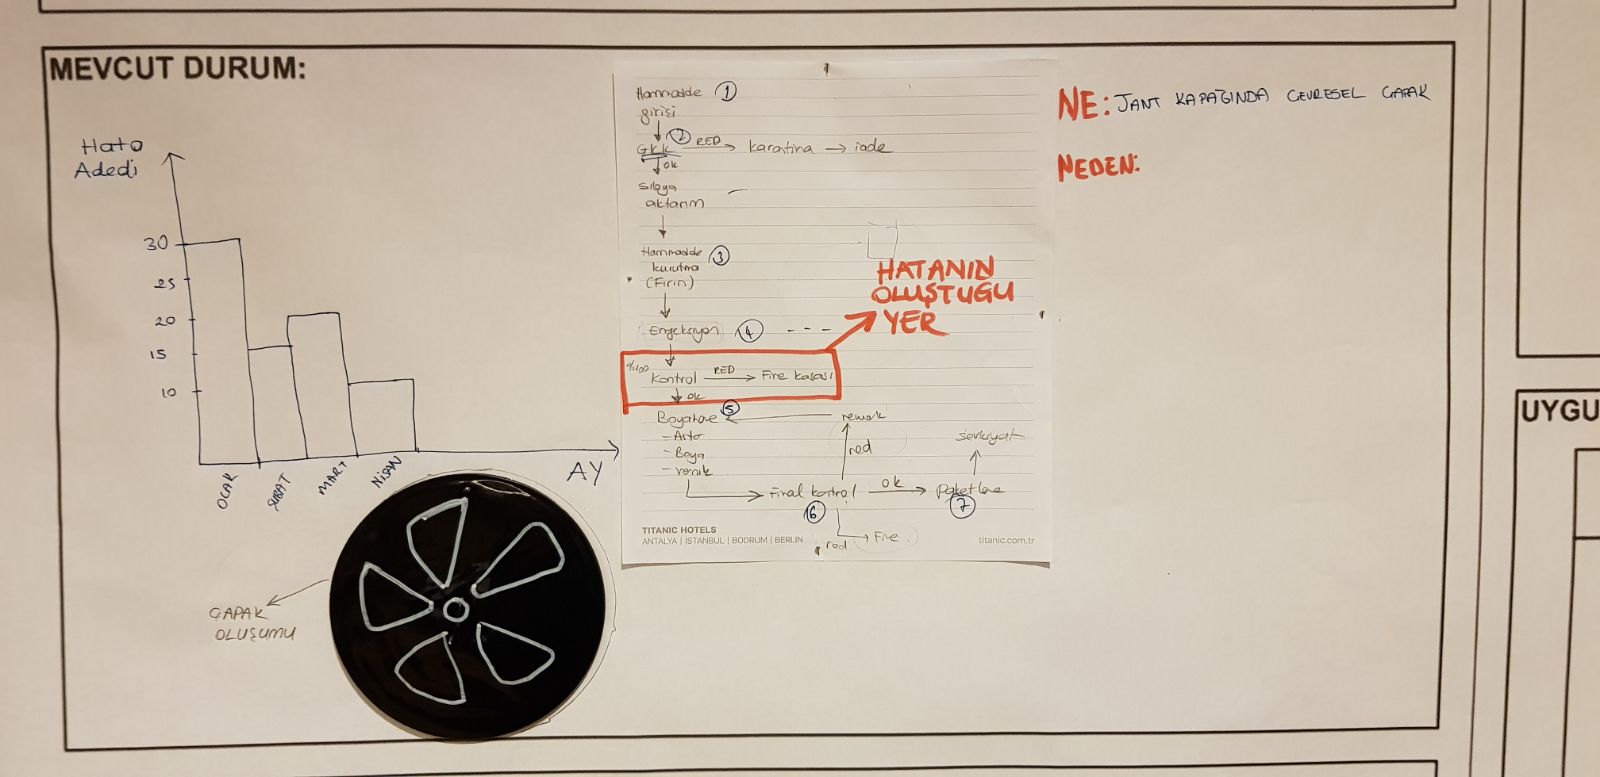 MEVCUT DURUM:
Hata
Adedi
30
25
20
15
10
OCAK
ŞUBAT
MART
NİSAN
AY
ÇAPAK
OLUŞUMU
Hammadde 1
girişi
GKK 2 RED karantina → iade
ok
Siloya
aktarım
Hammadde 3
kurutma
(Fırın)
Enjeksiyon 4 - - -
%100 Kontrol RED Fire kasası
ok
HATANIN
OLUŞTUĞU
YER
Boyahane 5 rework
- Astar
- Boya
- Vernik
red
sevkiyat
Final kontrol ok paketleme
6 7
red → Fire
TITANIC HOTELS
ANTALYA | ISTANBUL | BODRUM | BERLIN titanic.com.tr
NE: JANT KAPAĞINDA ÇEVRESEL ÇAPAK
NEDEN:
UYGU